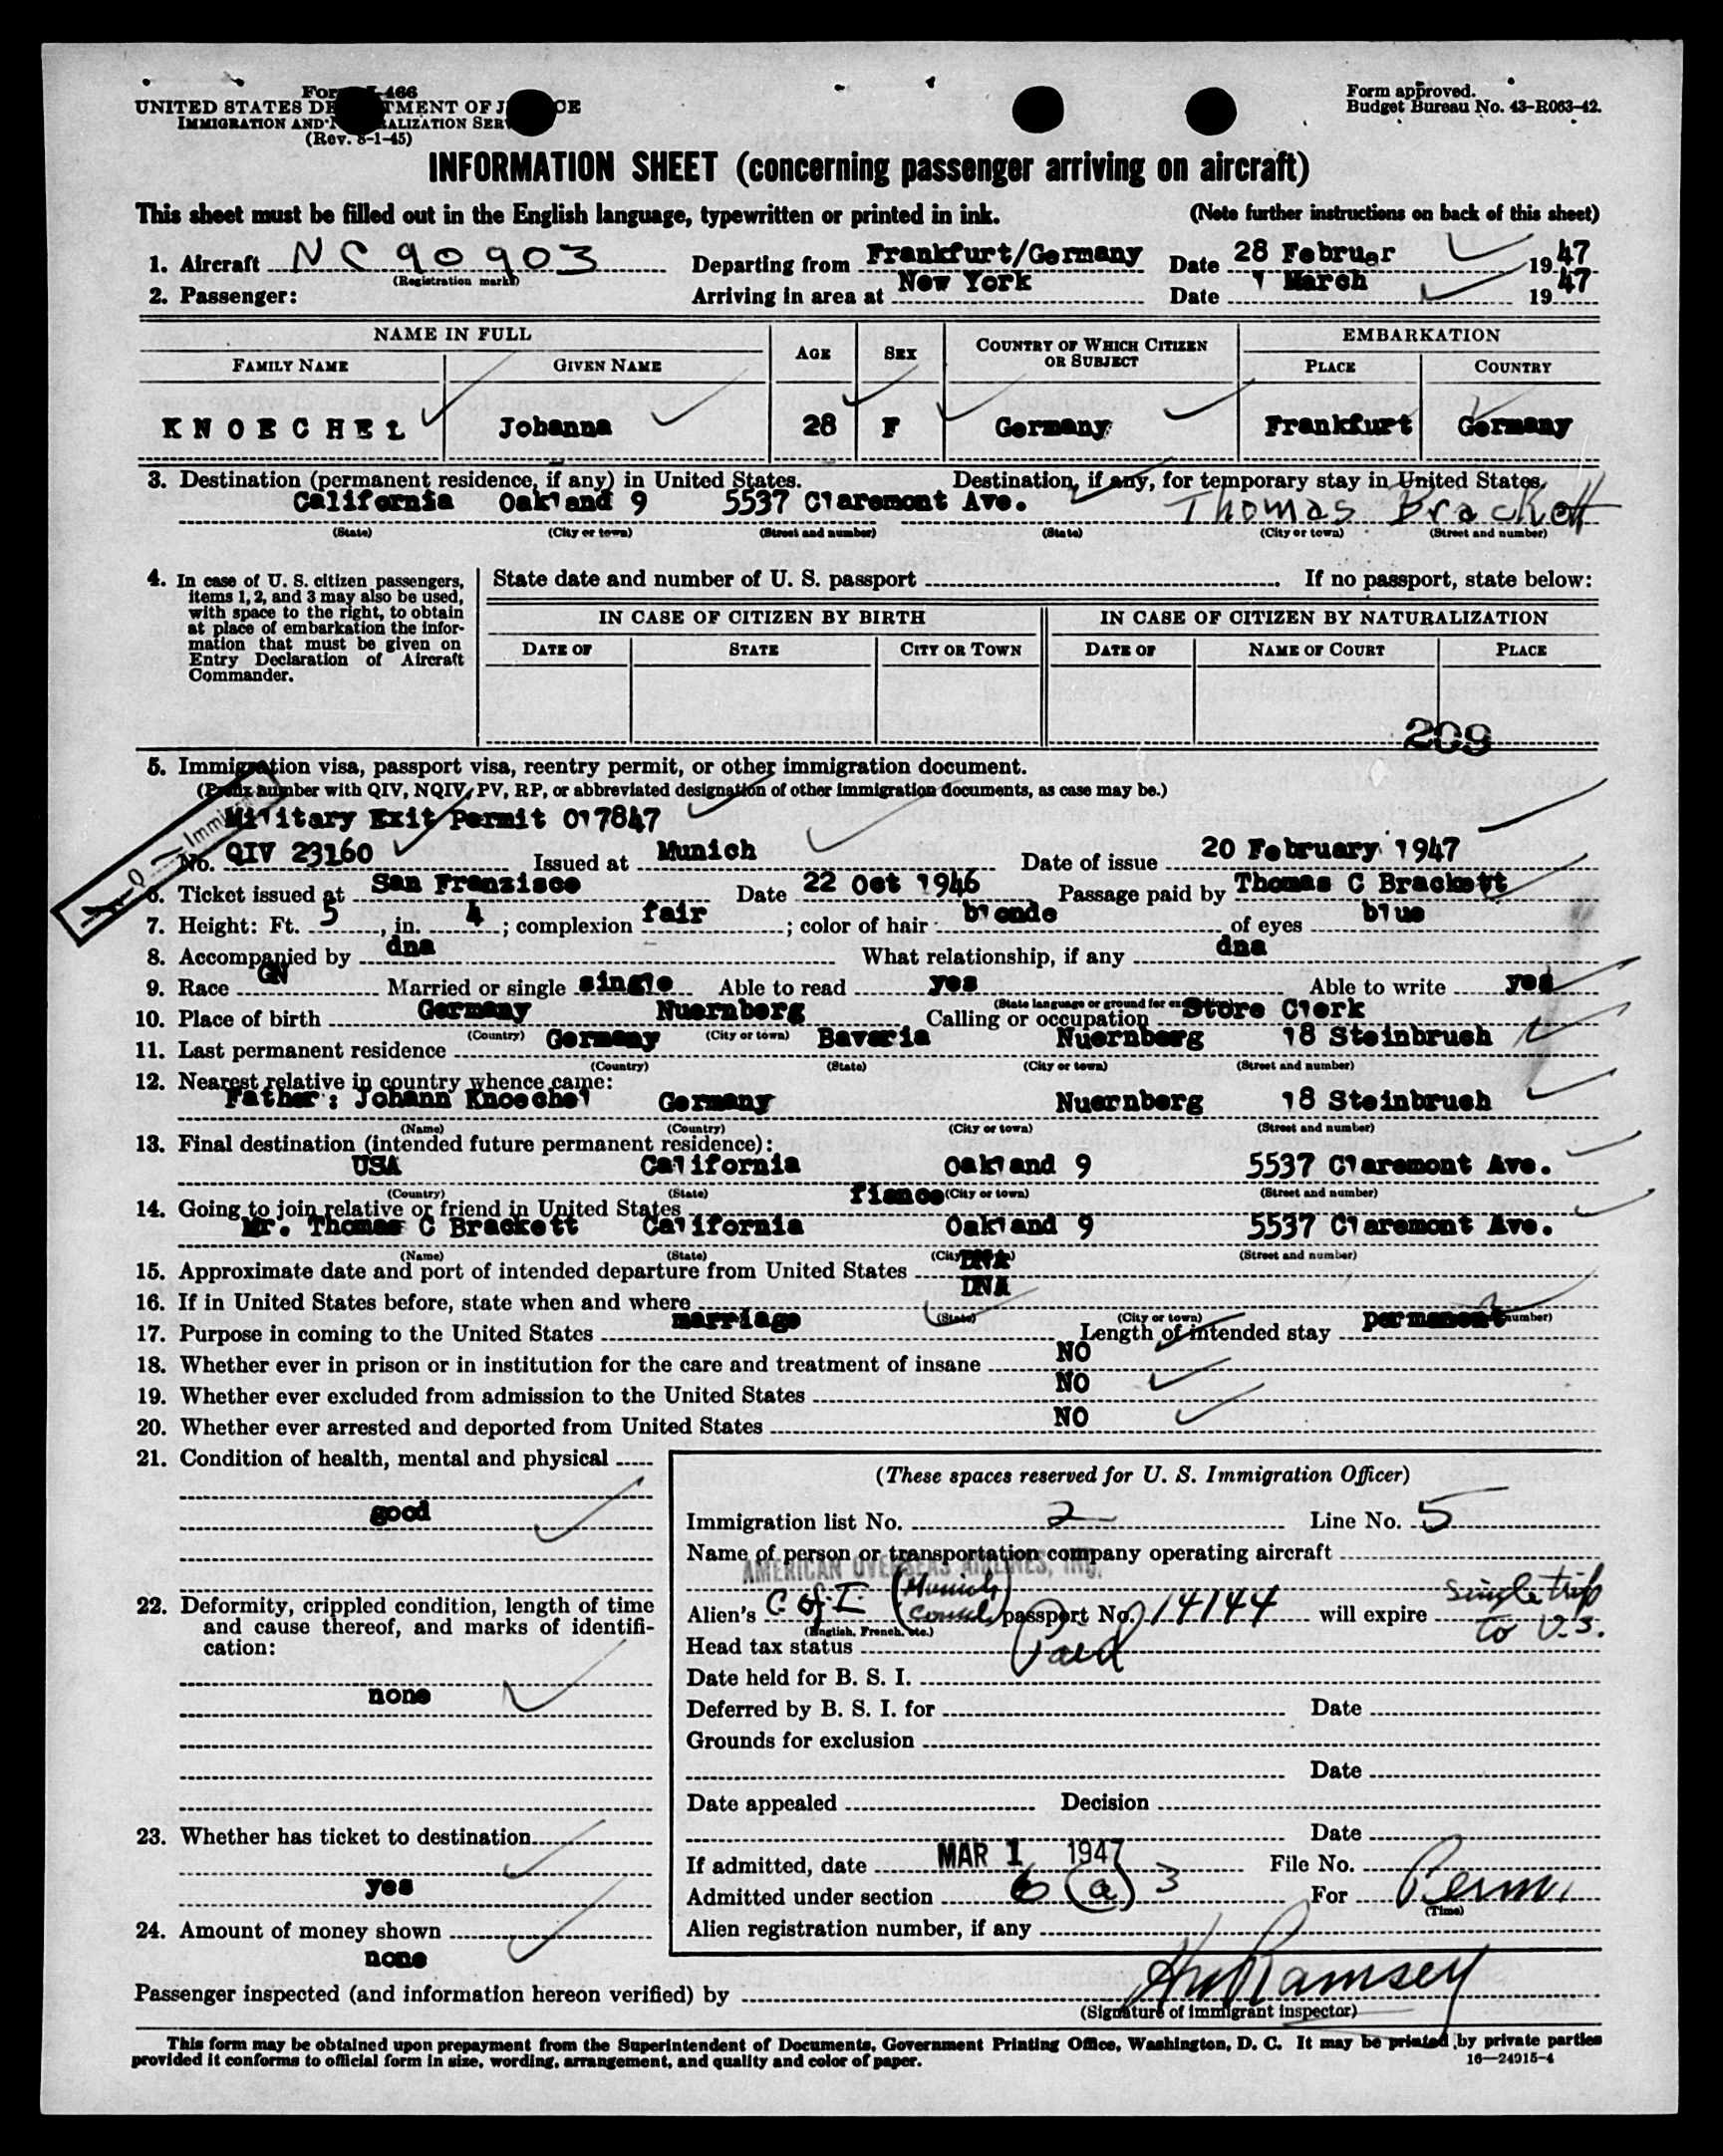 Form I-466
UNITED STATES DEPARTMENT OF JUSTICE
IMMIGRATION AND NATURALIZATION SERVICE
(Rev. 8-1-45)
Form approved.
Budget Bureau No. 43-R063-42.
INFORMATION SHEET (concerning passenger arriving on aircraft)
This sheet must be filled out in the English language, typewritten or printed in ink. (Note further instructions on back of this sheet)
1. Aircraft NC 90903 Departing from Frankfurt/Germany Date 28 Februar 1947
(Registration marks)
2. Passenger: Arriving in area at New York Date 1 March 1947
NAME IN FULL AGE SEX COUNTRY OF WHICH CITIZEN OR SUBJECT EMBARKATION
FAMILY NAME GIVEN NAME PLACE COUNTRY
KNOECHEL Johanna 28 F Germany Frankfurt Germany
3. Destination (permanent residence, if any) in United States. Destination, if any, for temporary stay in United States.
California Oakland 9 5537 Claremont Ave. Thomas Brackett
(State) (City or town) (Street and number) (State) (City or town) (Street and number)
4. In case of U. S. citizen passengers,
items 1, 2, and 3 may also be used,
with space to the right, to obtain
at place of embarkation the infor-
mation that must be given on
Entry Declaration of Aircraft
Commander.
State date and number of U. S. passport If no passport, state below:
IN CASE OF CITIZEN BY BIRTH IN CASE OF CITIZEN BY NATURALIZATION
DATE OF STATE CITY OR TOWN DATE OF NAME OF COURT PLACE
209
5. Immigration visa, passport visa, reentry permit, or other immigration document.
(Prefix number with QIV, NQIV, PV, RP, or abbreviated designation of other immigration documents, as case may be.)
Military Exit Permit 017847
No. QIV 23160 Issued at Munich Date of issue 20 February 1947
6. Ticket issued at San Franzisco Date 22 Oct 1946 Passage paid by Thomas C Brackett
7. Height: Ft. 5, in. 4; complexion fair; color of hair blonde of eyes blue
8. Accompanied by dna What relationship, if any dna
9. Race GN Married or single single Able to read yes Able to write yes
10. Place of birth Germany Nuernberg Calling or occupation Store Clerk
(Country) (City or town)
11. Last permanent residence Germany Bavaria Nuernberg 18 Steinbruch
(Country) (State) (City or town) (Street and number)
12. Nearest relative in country whence came:
Father: Johann Knoechel Germany Nuernberg 18 Steinbruch
(Name) (Country) (City or town) (Street and number)
13. Final destination (intended future permanent residence):
USA California Oakland 9 5537 Claremont Ave.
(Country) (State) (City or town) (Street and number)
14. Going to join relative or friend in United States fiance
Mr. Thomas C Brackett California Oakland 9 5537 Claremont Ave.
(Name) (State) (City or town) (Street and number)
15. Approximate date and port of intended departure from United States DNA
16. If in United States before, state when and where DNA
(State) (City or town) (Street and number)
17. Purpose in coming to the United States marriage Length of intended stay permanent
18. Whether ever in prison or in institution for the care and treatment of insane NO
19. Whether ever excluded from admission to the United States NO
20. Whether ever arrested and deported from United States NO
21. Condition of health, mental and physical
good
22. Deformity, crippled condition, length of time
and cause thereof, and marks of identifi-
cation:
none
23. Whether has ticket to destination
yes
24. Amount of money shown
none
(These spaces reserved for U. S. Immigration Officer)
Immigration list No. 2 Line No. 5
Name of person or transportation company operating aircraft
AMERICAN OVERSEAS AIRLINES, INC.
Alien's C of I (Munich Consul) passport No. 14144 will expire single trip to U.S.
(English, French, etc.)
Head tax status Paid
Date held for B. S. I.
Deferred by B. S. I. for Date
Grounds for exclusion
Date
Date appealed Decision
Date
If admitted, date MAR 1 1947 File No.
Admitted under section 6 (a) 3 For Perm.
(Time)
Alien registration number, if any
Passenger inspected (and information hereon verified) by Ramsey
(Signature of immigrant inspector)
This form may be obtained upon prepayment from the Superintendent of Documents, Government Printing Office, Washington, D. C. It may be printed by private parties
provided it conforms to official form in size, wording, arrangement, and quality and color of paper.
16—24915-4